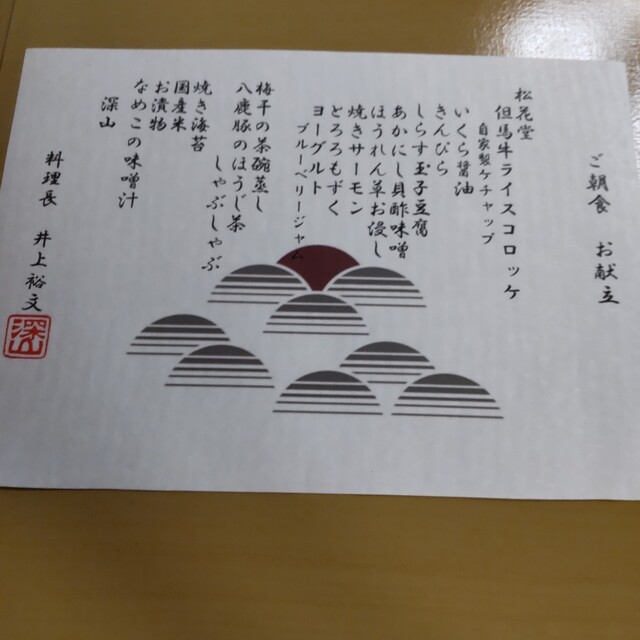 ご朝食　お献立
松花堂
但馬牛ライスコロッケ
自家製ケチャップ
いくら醤油
きんぴら
しらす玉子豆腐
あかにし貝酢味噌
ほうれん草お浸し
焼きサーモン
とろろもずく
ヨーグルト
ブルーベリージャム
梅干の茶碗蒸し
八鹿豚のほうじ茶
しゃぶしゃぶ
焼き海苔
国産米
お漬物
なめこの味噌汁
深山
料理長　井上裕文
深山